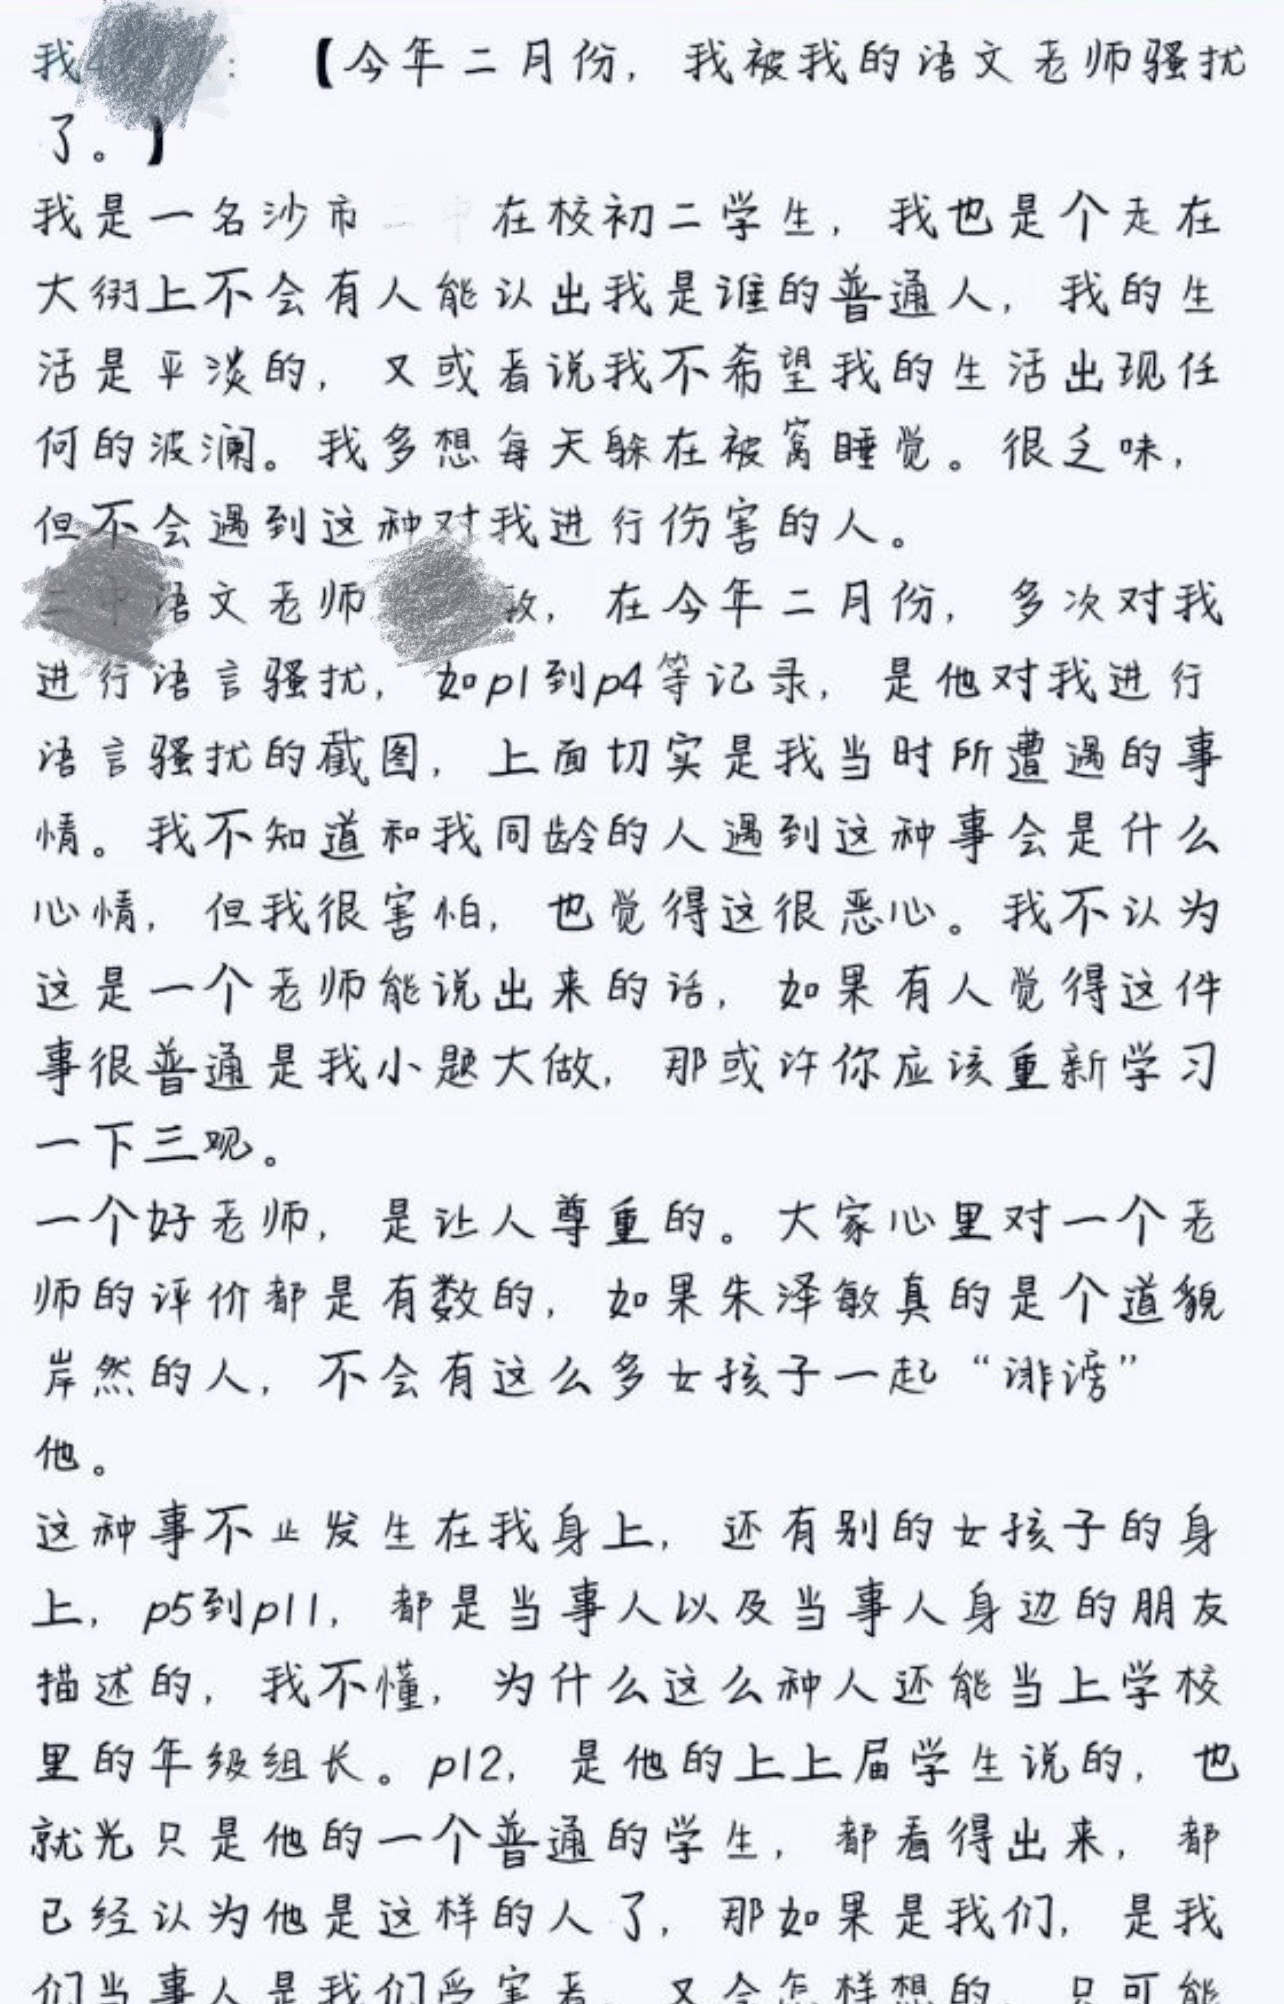 我 : 【今年二月份，我被我的语文老师骚扰
了。】
我是一名沙市二中在校初二学生，我也是个走在
大街上不会有人能认出我是谁的普通人，我的生
活是平淡的，又或者说我不希望我的生活出现任
何的波澜。我多想每天躲在被窝睡觉。很乏味，
但不会遇到这种对我进行伤害的人。
语文老师 ，在今年二月份，多次对我
进行语言骚扰，如p1到p4等记录，是他对我进行
语言骚扰的截图，上面切实是我当时所遭遇的事
情。我不知道和我同龄的人遇到这种事会是什么
心情，但我很害怕，也觉得这很恶心。我不认为
这是一个老师能说出来的话，如果有人觉得这件
事很普通是我小题大做，那或许你应该重新学习
一下三观。
一个好老师，是让人尊重的。大家心里对一个老
师的评价都是有数的，如果朱泽敏真的是个道貌
岸然的人，不会有这么多女孩子一起“诽谤”
他。
这种事不止发生在我身上，还有别的女孩子的身
上，p5到p11，都是当事人以及当事人身边的朋友
描述的，我不懂，为什么这么种人还能当上学校
里的年级组长。p12，是他的上上届学生说的，也
就光只是他的一个普通的学生，都看得出来，都
已经认为他是这样的人了，那如果是我们，是我
们当事人是我们受害者，又会怎样想的。只可能